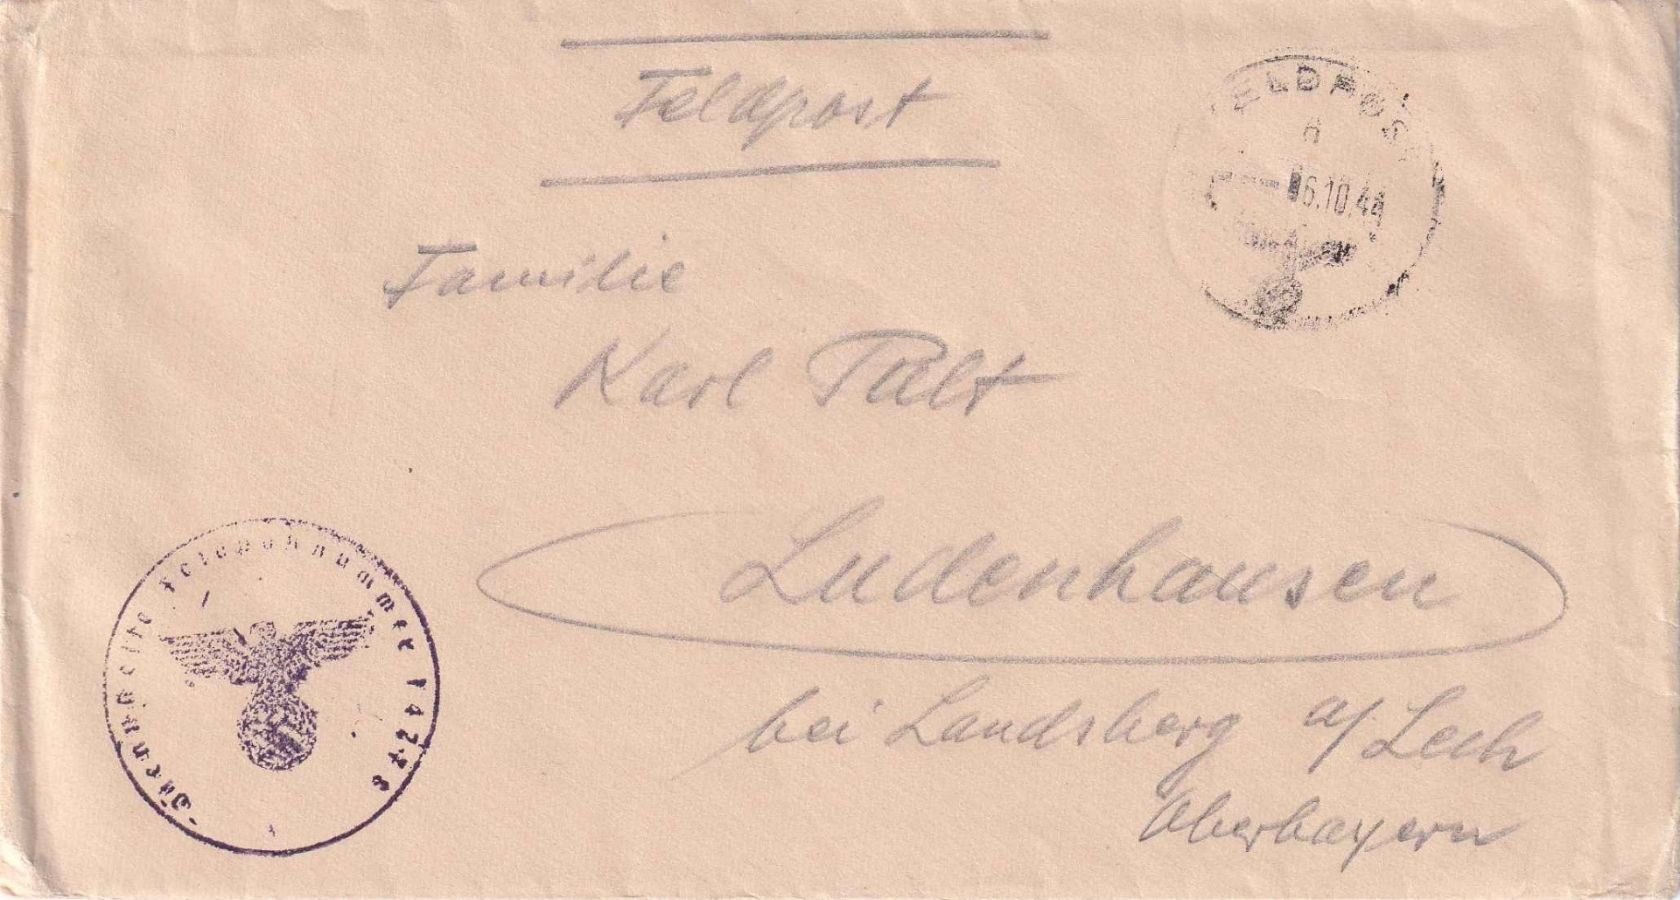 Feldpost
FELDPOST
a
6.10.44
Familie
Karl Palt
Ludenhausen
bei Landsberg a/Lech
Oberbayern
Dienststelle Feldpostnummer 14278